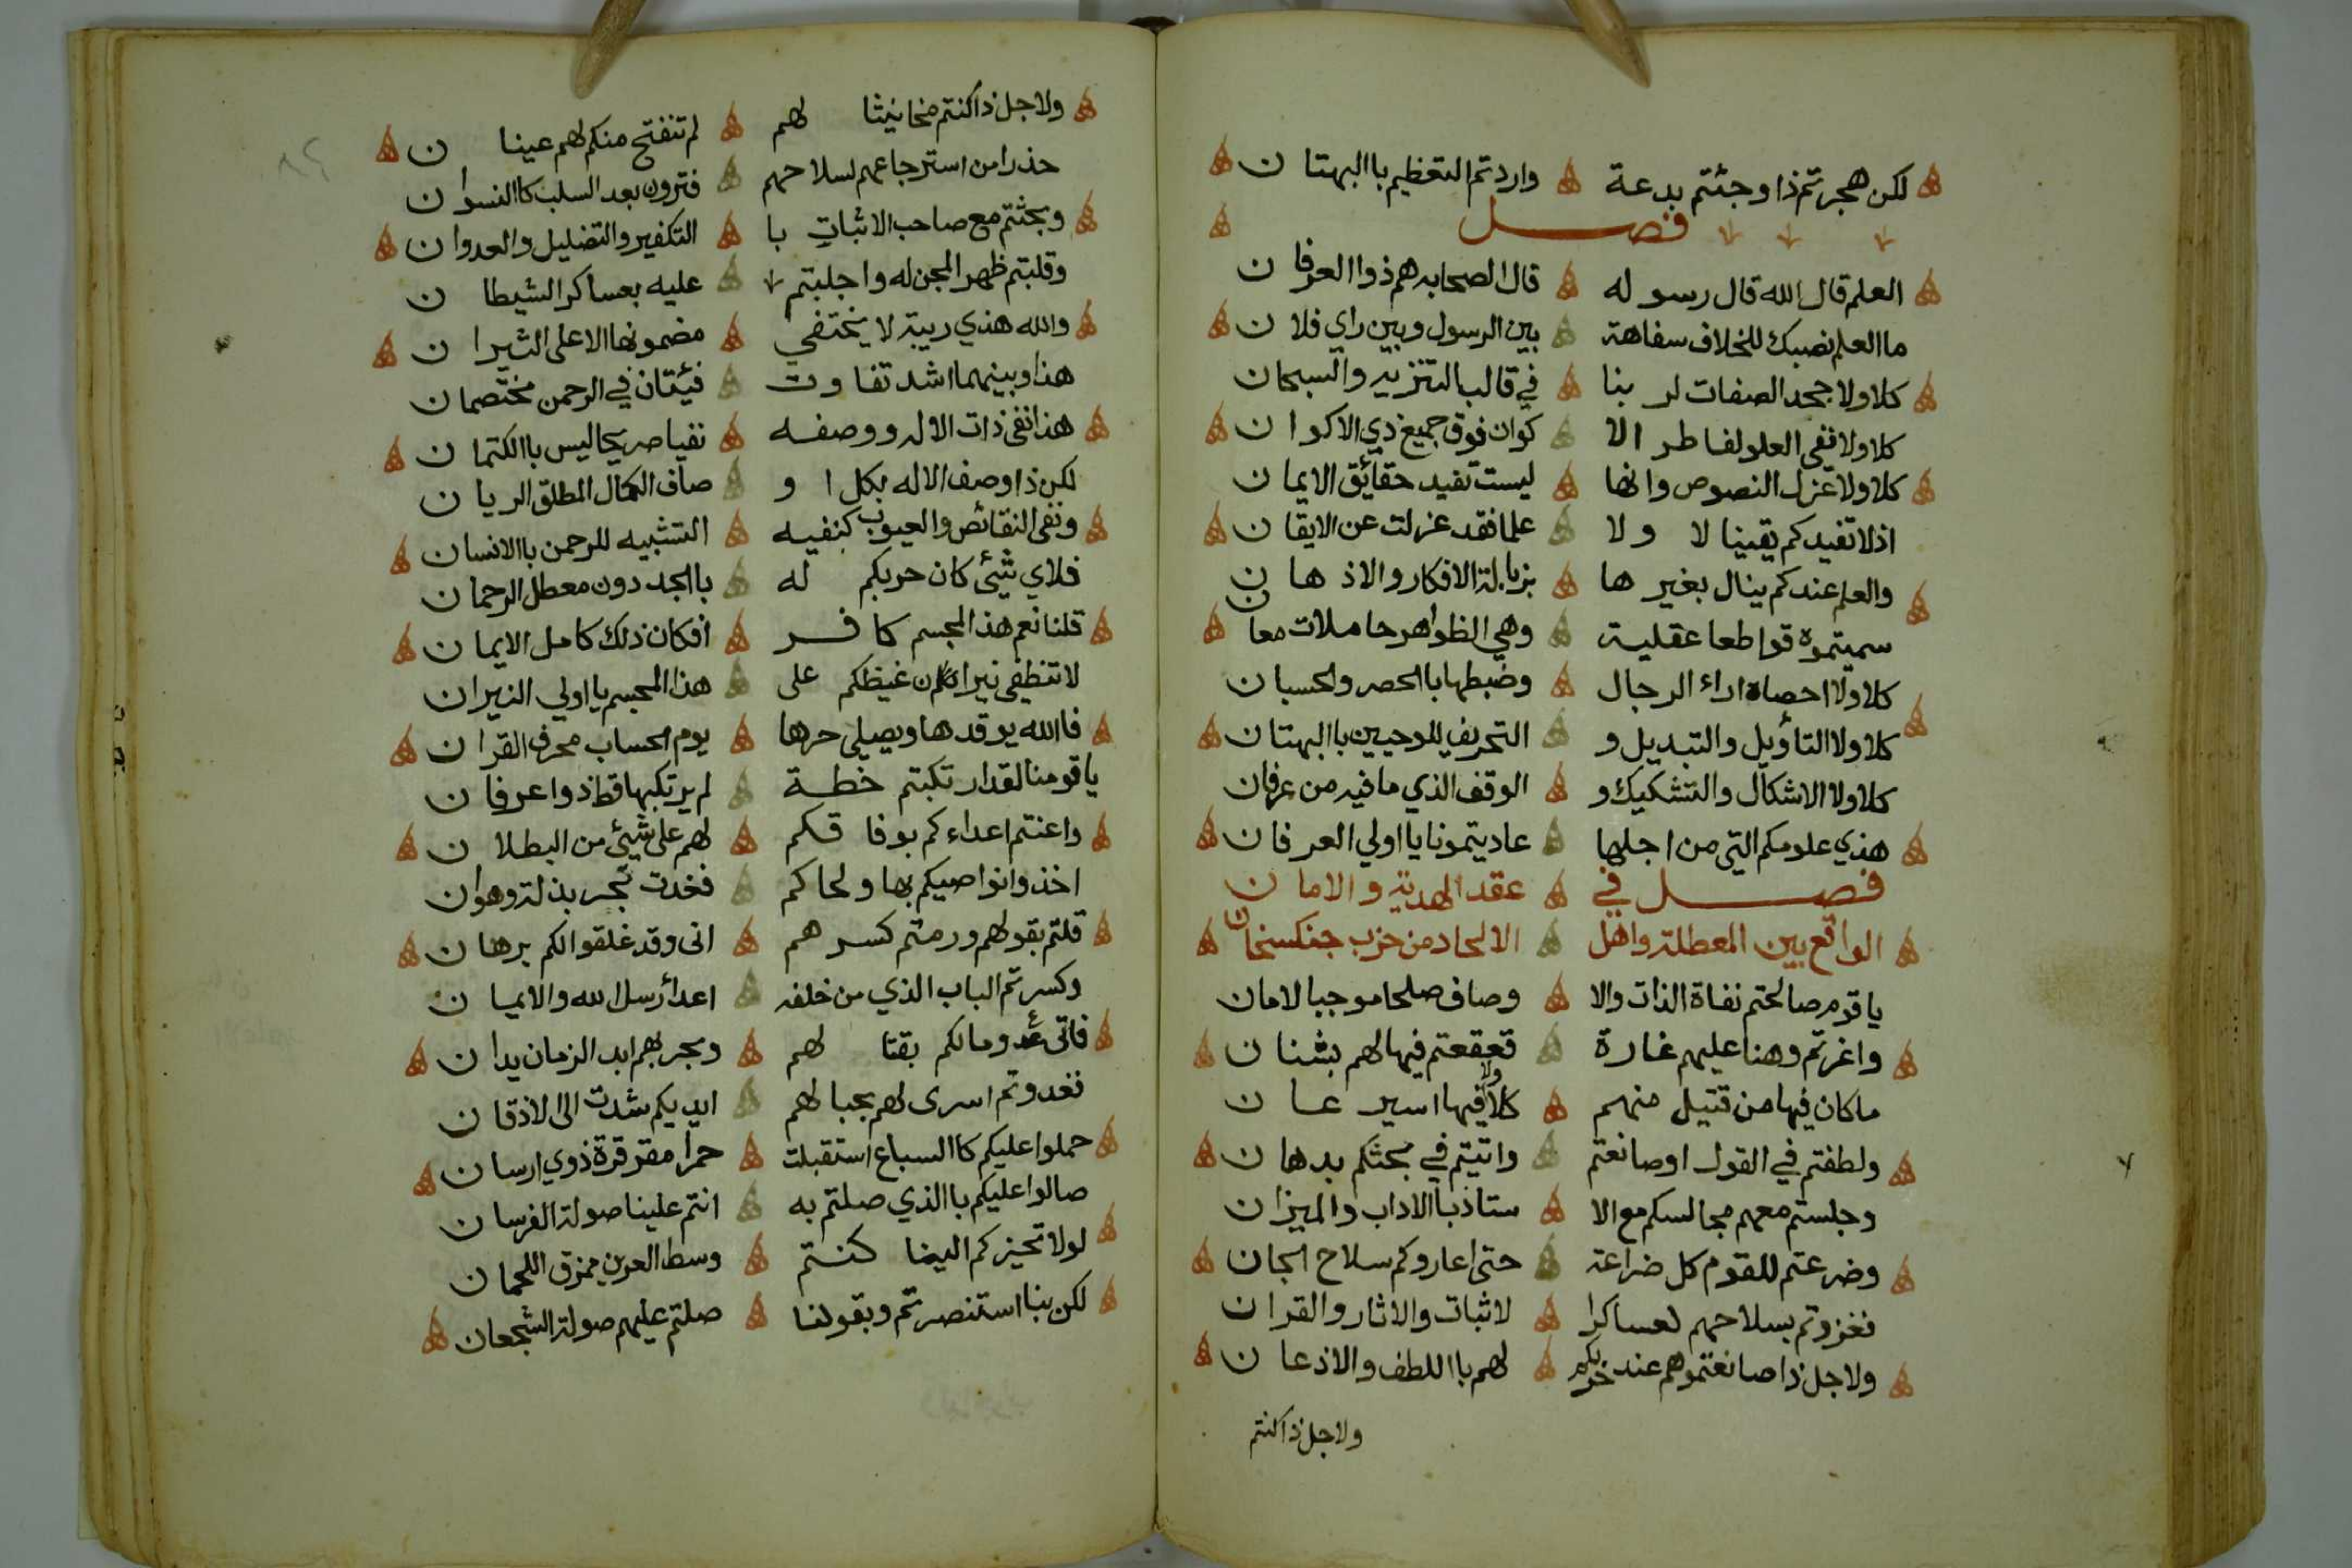 لكن هجرتم ذا وجئتم بدعة واردتم التعظيم باالبهتان
فصل
العلم قال الله قال رسوله قال الصحابه هم ذوا العرفان
ما العلم نصبك للخلاف سفاهة بين الرسول وبين راي فلان
كلا ولا جحد الصفات لربنا في قالب التنزيه والسبحان
كلا ولا نفي العلو لفاطر الا كوان فوق جميع ذي الاكوان
كلا ولا عزل النصوص وانها ليست تفيد حقائق الايمان
اذ لا تفيدكم يقينا لا ولا علما فقد عزلت عن الايقان
والعلم عندكم ينال بغيرها بزبالة الافكار والاذهان
سميتموه قواطعا عقلية وهي الظواهر حاملات معان
كلا ولا احصاء اراء الرجال وضبطها باالحصر والحسبان
كلا ولا التاؤيل والتبديل و التحريف للوحيين باالبهتان
كلا ولا الاشكال والتشكيك و الوقف الذي ما فيه من عرفان
هذي علومكم التي من اجلها عاديتمونا يا اولي العرفان
فصل في عقد الهدنة والامان
الواقع بين المعطلة واهل الالحاد من حزب جنكسخان
يا قوم صالحتم نفاة الذات والا وصاف صلحا موجبا لامان
واغرتم وهنا عليهم غارة قعقعتم فيها لهم بشنان
ما كان فيها من قتيل منهم كلا ولا فيها اسير عان
ولطفتم في القول اوصانعتم واتيتم في بحثكم بدهان
وجلستم معهم مجالسكم مع الا ستاذ باالاداب والميزان
وضرعتم للقوم كل ضراعة حتى اعاروكم سلاح الجان
فغزوتم بسلاحهم لعساكر ا لاثبات والاثار والقران
ولاجل ذا صانعتموهم عند حربكم لهم باللطف والاذعان
ولاجل ذا كنتم
ولاجل ذا كنتم مخانيثا لهم لم تنفتح منكم لهم عينان
حذرا من استرجاعهم لسلاحهم فترون بعد السلب كاالنسوان
وبحثتم مع صاحب الاثبات با التكفير والتضليل والعدوان
وقلبتم ظهر المجن له واجلبتم عليه بعساكر الشيطان
والله هذي ريبة لا يختفي مضمونها الا على الثيران
هذا وبينهما اشد تفاوت فيئتان في الرحمن مختصمان
هذا نفى ذات الاله ووصفه نفيا صريحا ليس باالكتمان
لكن ذا وصف الاله بكل او صاف الكمال المطلق الريان
ونفى النقائص والعيوب كنفيه التشبيه للرحمن باالانسان
فلاي شيئ كان حربكم له باالجد دون معطل الرحمان
قلنا نعم هذا المجسم كافر افكان ذلك كامل الايمان
لا تنطفي نيران غيظكم على هذا المجسم يا اولي النيران
فاالله يوقدها ويصلي حرها يوم الحساب محرف القران
يا قومنا لقد ارتكبتم خطة لم يرتكبها قط ذوا عرفان
واعنتم اعداءكم بوفاقكم لهم على شيئ من البطلان
اخذوا نواصيكم بها ولحاكم فغدت تجر بذلة وهوان
قلتم بقولهم ورمتم كسرهم انى وقد غلقوا لكم برهان
وكسرتم الباب الذي من خلفه اعداء رسل الله والايمان
فاتى عدو ما لكم بقتالهم وبحربهم ابد الزمان يدان
فغدوتم اسرى لهم بحبالهم ايديكم شدت الى الاذقان
حملوا عليكم كاالسباع استقبلت حمرا مقرقرة ذوي ارسان
صالوا عليكم باالذي صلتم به انتم علينا صولة الفرسان
لولا تحيزكم الينا كنتم وسط العرين ممزق اللحمان
لكن بنا استنصرتم وبقولنا صلتم عليهم صولة الشجعان